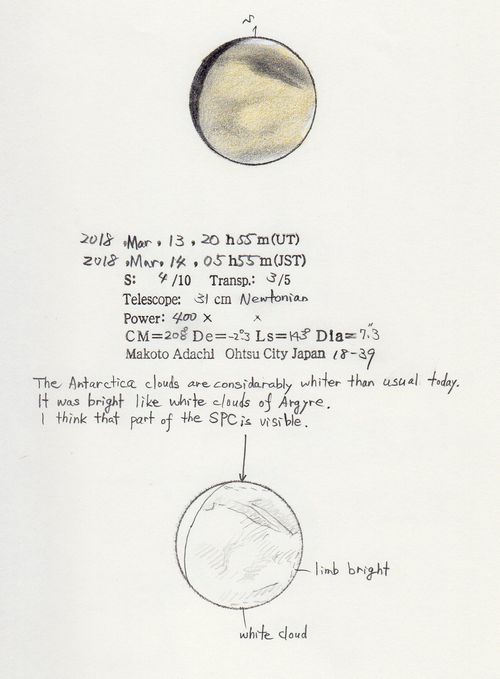 2018 , Mar , 13 , 20 h 55 m (UT)
2018 , Mar , 14 , 05 h 55 m (JST)
S: 4 /10 Transp.: 3/5
Telescope: 31 cm Newtonian
Power: 400 × ×
CM=208° De=-2.°3 Ls=143° Dia=7."3
Makoto Adachi Ohtsu City Japan 18-39
The Antarctica clouds are considarably whiter than usual today.
It was bright like white clouds of Argyre.
I think that part of the SPC is visible.
limb bright
white cloud